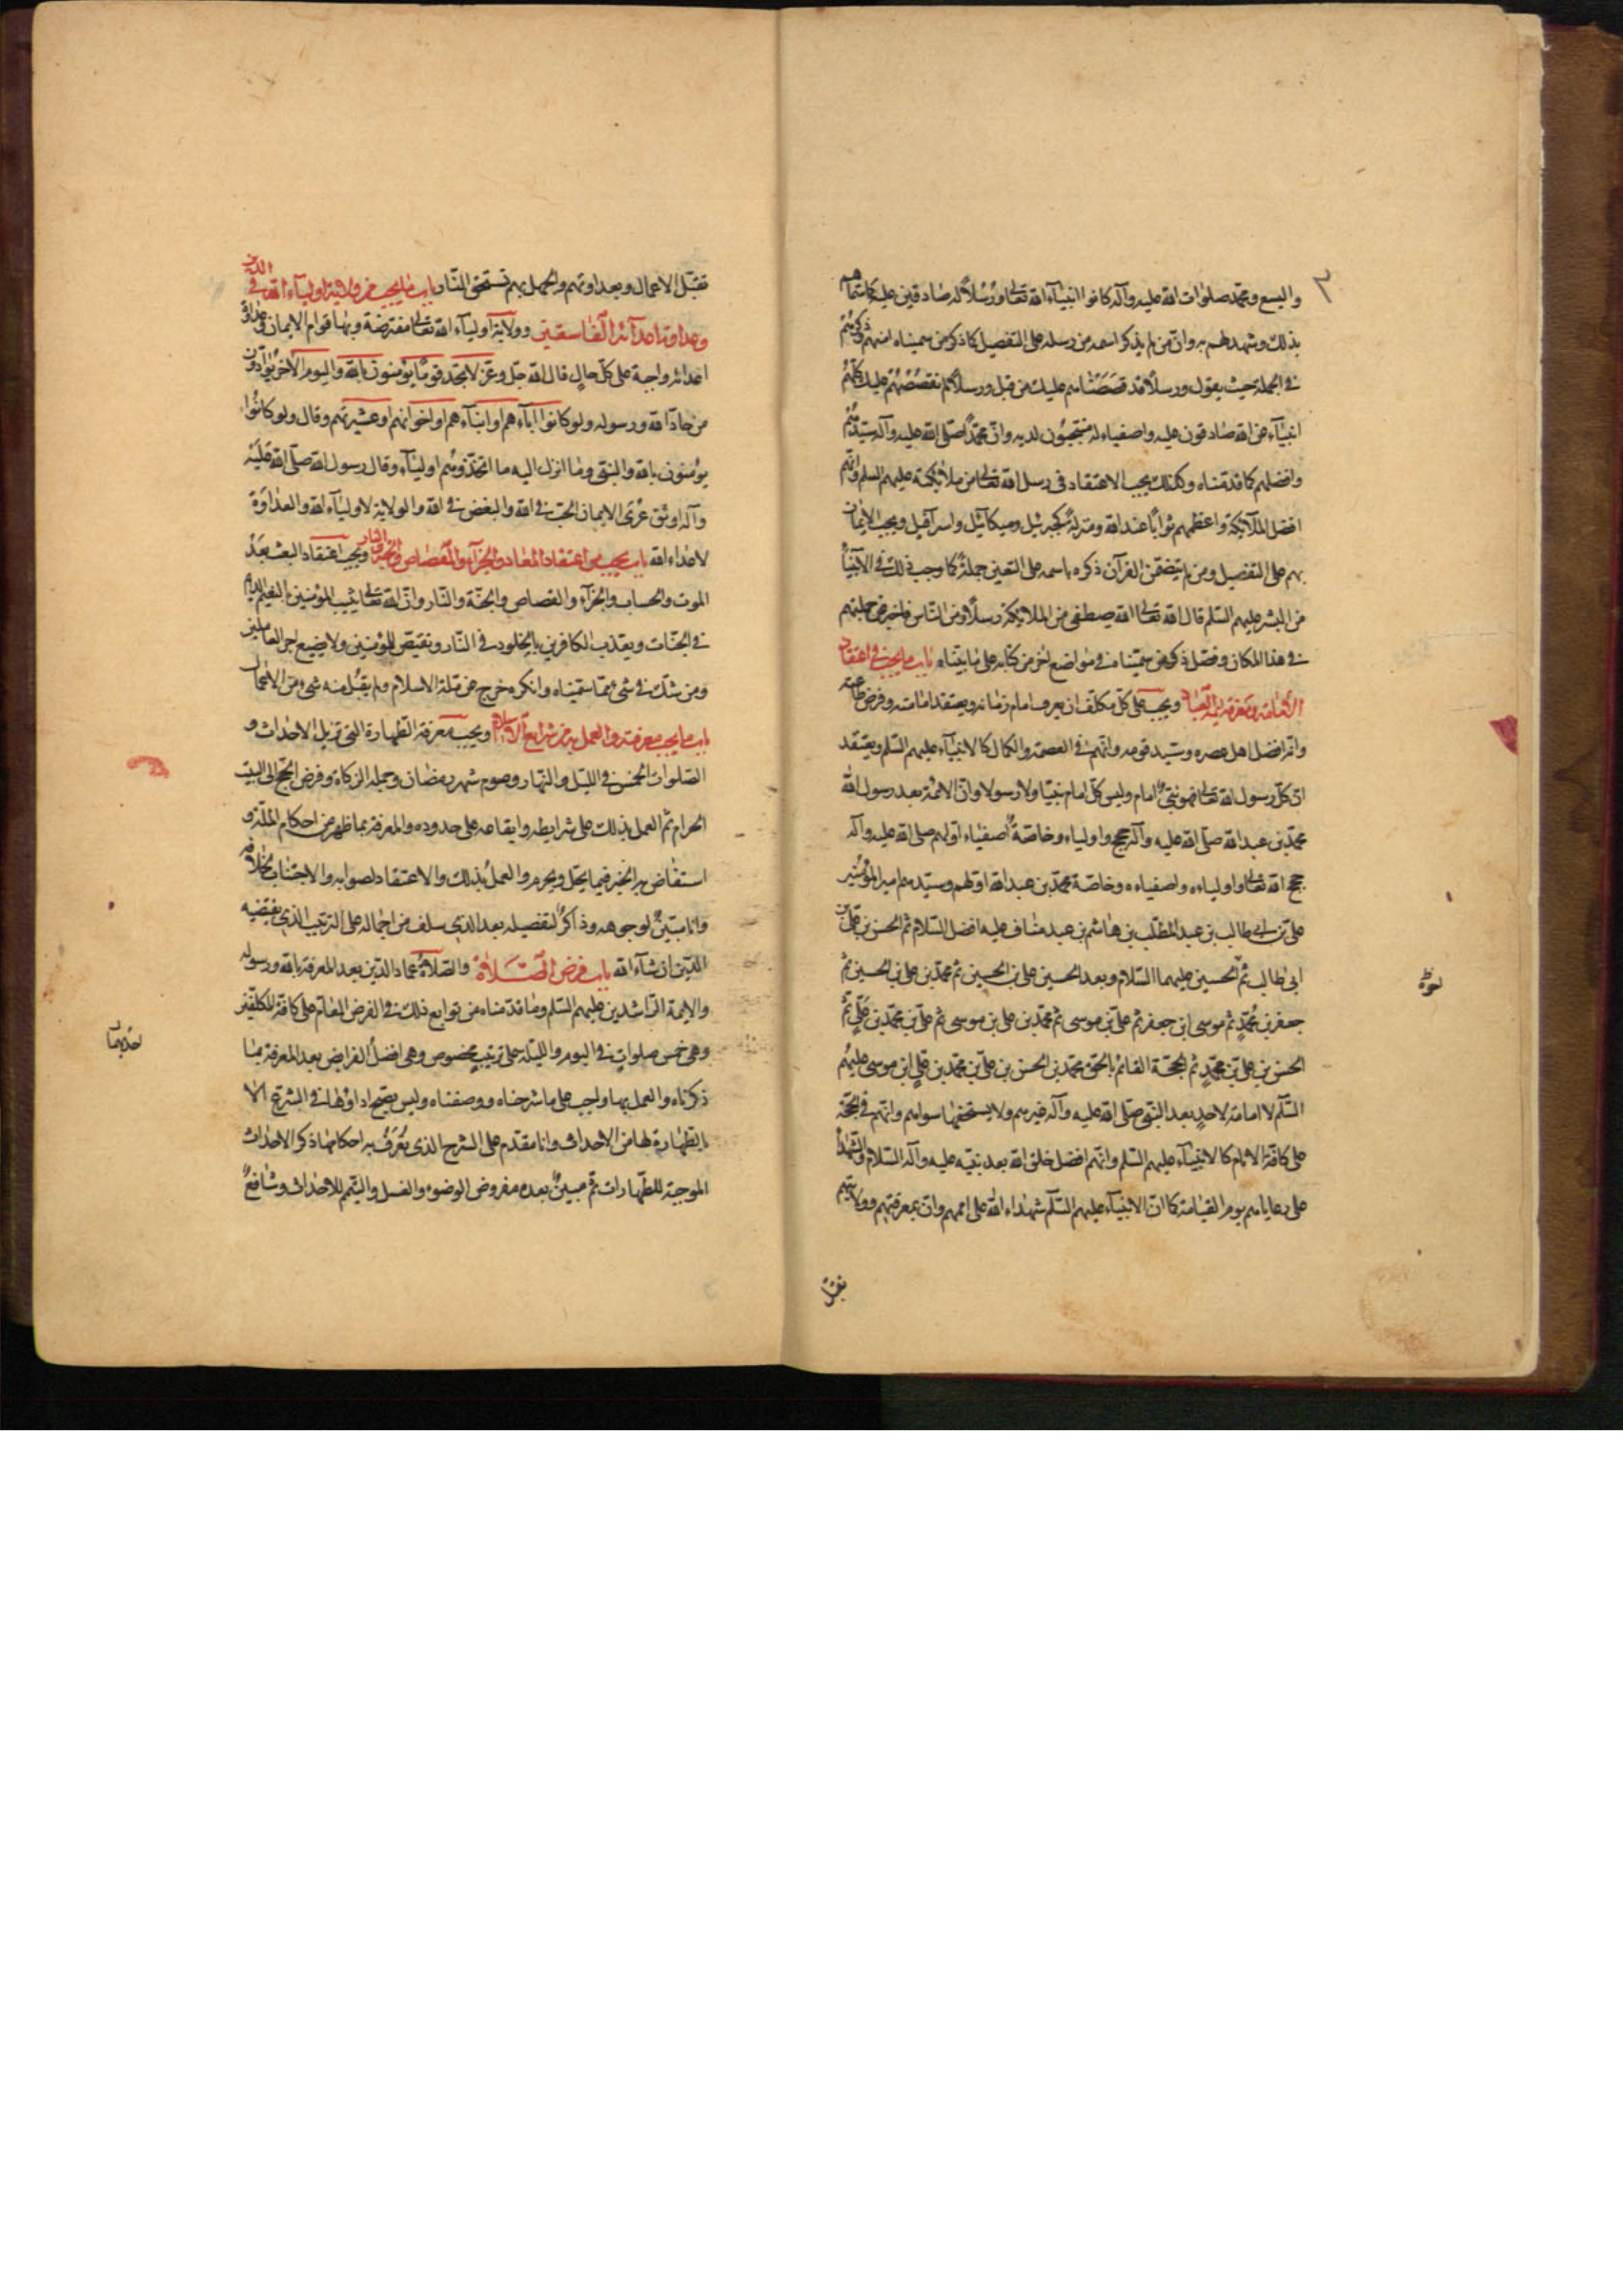 ٣
واليسع ومحمد صلوات الله عليه وآله كانوا انبياء الله تعالى ورسلا له صادقين عليه كما سماهم
بذلك وشهد لهم به وان من لم يذكر اسمه من رسله على التفصيل كما ذكر من سميناه منهم وذكرهم
في الجملة حيث يقول ورسلا قد قصصناهم عليك من قبل ورسلا لم نقصصهم عليك كلهم
انبياء عن الله صادقون عليه واصفياء له منتجبون لديه وان محمدا صلى الله عليه وآله سيدهم
وافضلهم كما قدمناه وكذلك يجب الاعتقاد في رسل الله تعالى من ملائكته عليهم السلم وانهم
افضل الملآئكة واعظمهم ثوابا عند الله ومنزلة كجبرئيل وميكآئيل واسرآفيل ويجب الايمان
بهم على التفصيل ومن لم يتضمن القرآن ذكره باسمه على التعيين جملة كما وجب ذلك في الانبيآء
من البشر عليهم السلم قال الله تعالى الله يصطفي من الملائكة رسلا ومن الناس فاخبر عن جملتهم
في هذا المكان وفصل ذكر من سميناه في مواضع اخر من كتابه على ما بيناه باب ما يجب في اعتقاد
الامامة ومعرفة ائمة العباد ويجب على كل مكلف ان يعرف امام زمانه ويعتقد امامته وفرض طاعته
وانه افضل اهل عصره وسيد قومه وانهم في العصمة والكمال كالانبيآء عليهم السلم ويعتقد
ان كل رسول لله تعالى فهو نبي امام وليس كل امام نبيا ولا رسولا وان الائمة بعد رسول الله
محمد بن عبد الله صلى الله عليه وآله حجج واولياء وخاصة اصفياء اولهم صلى الله عليه وآله
حجج الله تعالى واولياءه واصفياءه وخاصة محمد بن عبد الله اولهم وسيدهم امير المؤمنين
علي بن ابي طالب بن عبد المطلب بن هاشم بن عبد مناف عليه افضل السلام ثم الحسن بن علي بن
ابي طالب ثم الحسين عليهما السلام وبعد الحسين علي بن الحسين ثم محمد بن علي بن الحسين ثم
جعفر بن محمد ثم موسى ابن جعفر ثم علي بن موسى ثم محمد بن علي بن موسى ثم علي بن محمد بن علي ثم
الحسن بن علي بن محمد ثم الحجة القائم بالحق محمد بن الحسن بن علي بن محمد بن علي ابن موسى عليهم
السلم لا امامة لاحد بعد النبي صلى الله عليه وآله غيرهم ولا يستحقها سواهم وانهم في الحجة
على كافة الانام كالانبيآء عليهم السلم وانهم افضل خلق الله بعد نبيه عليه وآله السلام والشهداء
على رعاياهم يوم القيامة كما ان الانبيآء عليهم السلم شهداء الله على اممهم وان بمعرفتهم وولايتهم
تقبل
تقبل الاعمال وبعداوتهم والجهل بهم تستحق النار باب ما يجب من ولاية اولياء الله في الدين
وعداوة اعدآئه الفاسقين وولاية اولياء الله تعالى مفترضة وبها قوام الايمان وعداوة
اعدائه واجبة على كل حال قال الله جل وعز لا تجد قوما يؤمنون بالله واليوم الآخر يوادون
من حاد الله ورسوله ولو كانوا اباءهم او ابناءهم او اخوانهم او عشيرتهم وقال ولو كانوا
يؤمنون بالله والنبي وما انزل اليه ما اتخذوهم اولياء وقال رسول الله صلى الله عليه
وآله اوثق عرى الايمان الحب في الله والبغض في الله والولاية لاوليآء الله والعداوة
لاعداء الله باب ما يجب من اعتقاد المعاد والجزآء والقصاص والجنة والنار ويجب اعتقاد البعث بعد
الموت والحساب والجزآء والقصاص والجنة والنار وان الله تعالى يثيب المؤمنين بالنعيم الدائم
في الجنات ويعذب الكافرين بالخلود في النار ويقتص للمؤمنين ولا يضيع اجر العاملين
ومن شك في شيء مما سميناه وانكره خرج عن ملة الاسلام ولم يقبل منه شيء من الاعمال
باب ما يجب معرفته والعمل به من شرايع الاسلام ويجب معرفة الطهارة التي تزيل الاحداث و
الصلوات الخمس في الليل والنهار وصوم شهر رمضان وجملة الزكاة وفرض الحج الى البيت
الحرام ثم العمل بذلك على شرايطه وايقاعه على حدوده والمعرفة بما ظهر من احكام الملة و
استفاض به الخبر فيما يحل ويحرم والعمل بذلك والاعتقاد لصوابه والاجتناب لخلافه
وانا مبين لوجوهه وذاكر لتفصيله بعد الذي سلف من اجماله على الترتيب الذي يقتضيه
الدين ان شآء الله باب فرض الصلاة والصلاة عماد الدين بعد المعرفة بالله ورسوله
والائمة الراشدين عليهم السلم وما قدمناه من توابع ذلك في الفرض العام على كافة المكلفين
وهي خمس صلوات في اليوم والليلة على ترتيب مخصوص وهي افضل الفرايض بعد المعرفة بما
ذكرناه والعمل بها واجب على ما شرحناه ووصفناه وليس يصح اداؤها في الشرع الا
بالطهارة لها من الاحداث وانا مقدم على الشرح الذي تعرف به احكامها ذكر الاحداث
الموجبة للطهارات ثم مبين بعده مفروض الوضوء والغسل والتيمم للاحداث وشافع